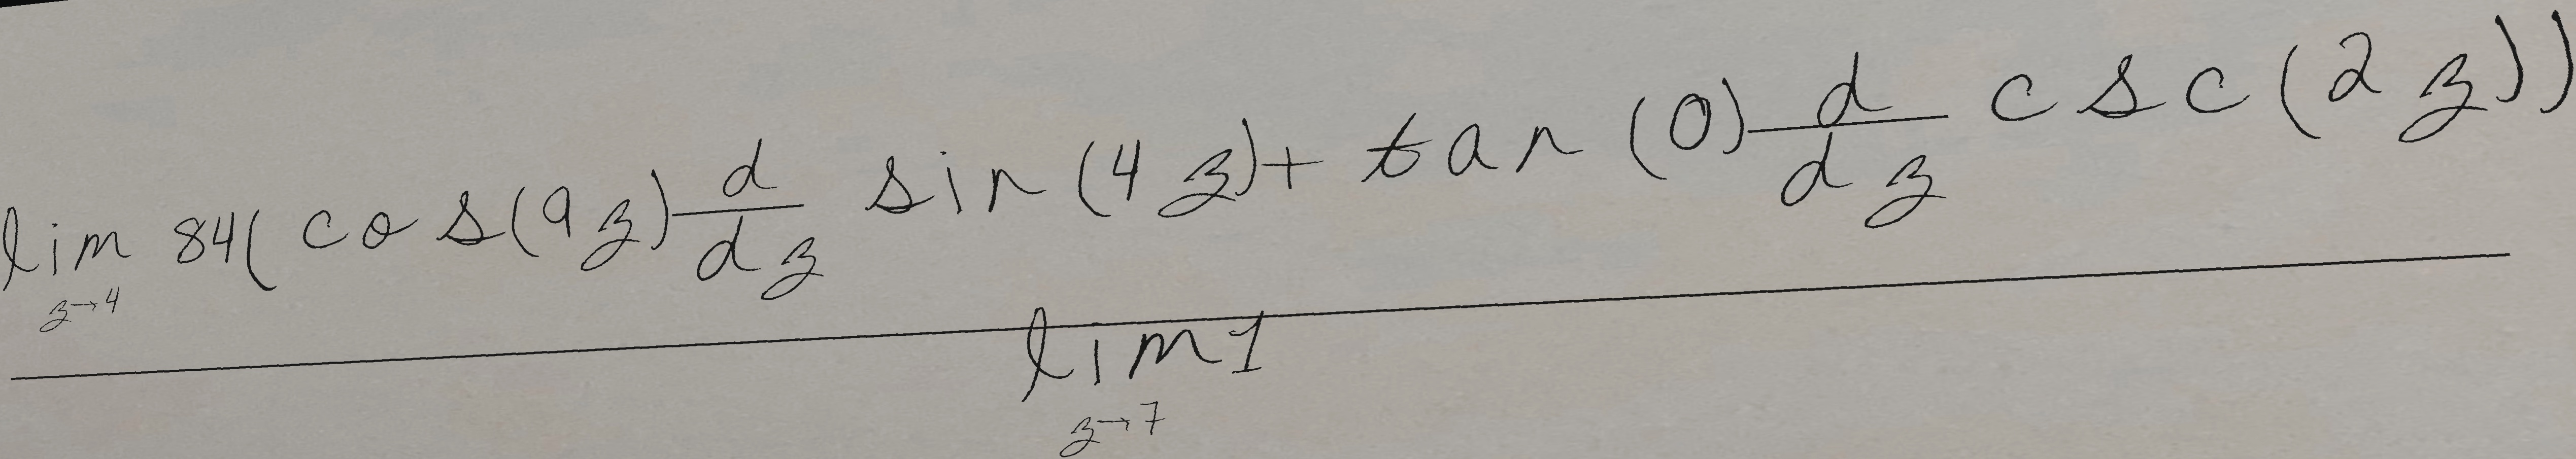 \frac{\lim_{z \to 4} 84(\cos(9z)\frac{d}{dz}\sin(4z)+\tan(0)\frac{d}{dz}\csc(2z))}{\lim_{z \to 7} 1}